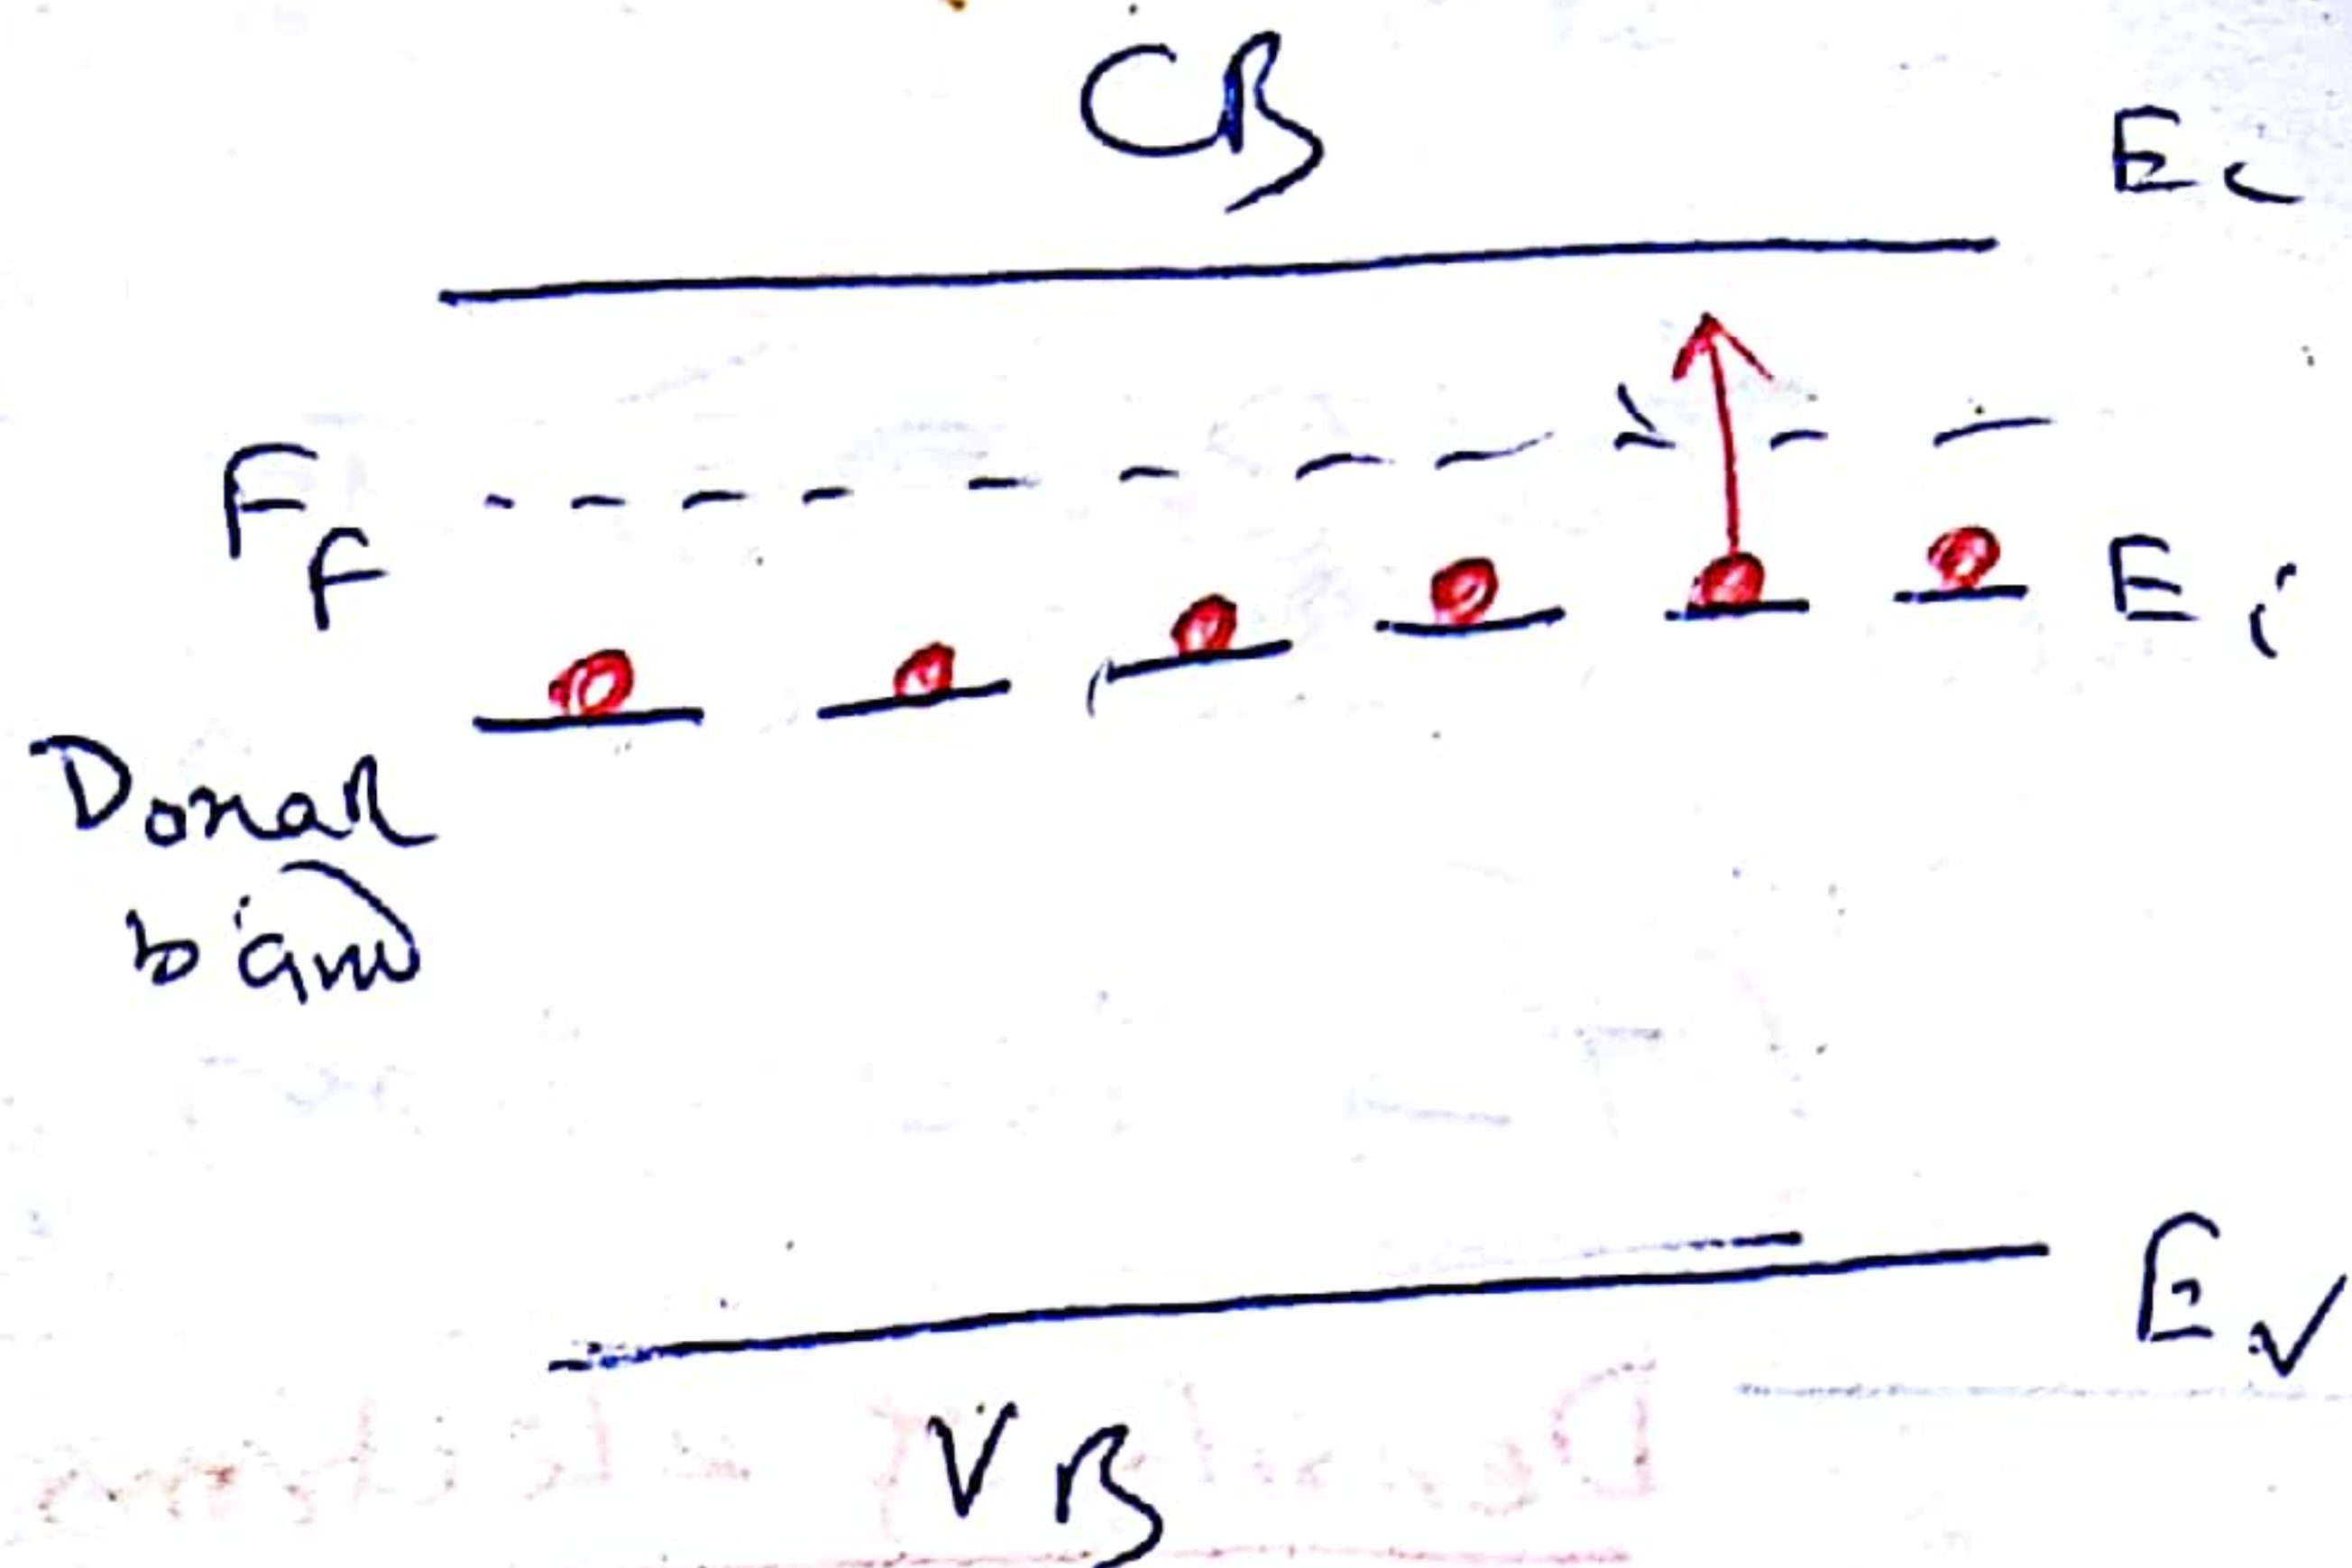 CB
Ec
Ff
Ei
Donar
band
Ev
VB